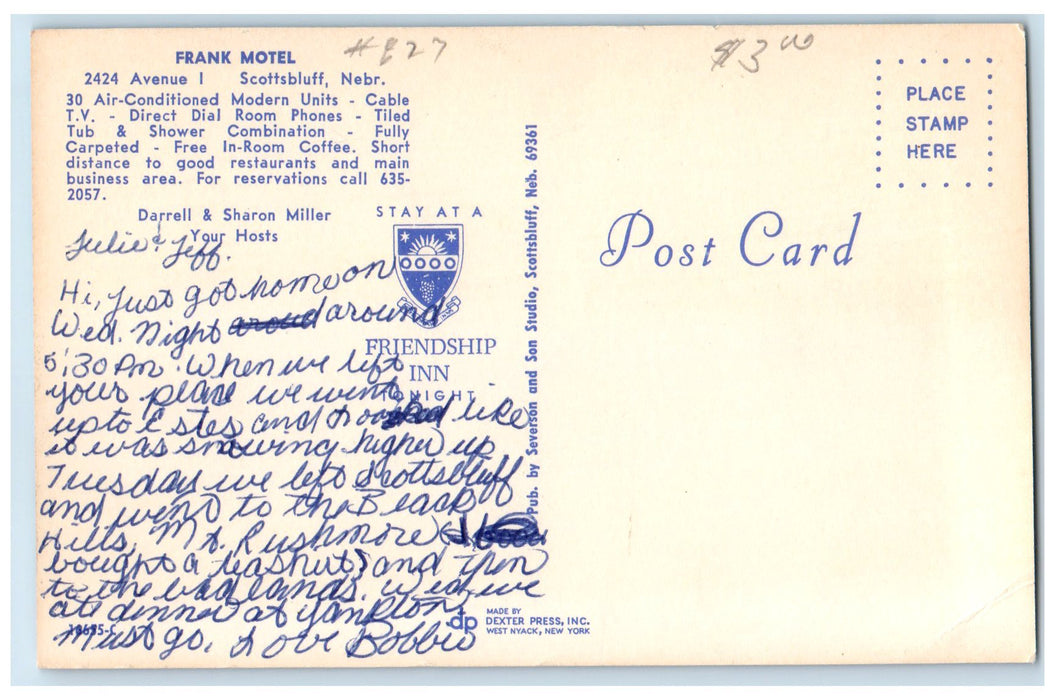 #827
$3.00
FRANK MOTEL
2424 Avenue I Scottsbluff, Nebr.
30 Air-Conditioned Modern Units - Cable
T.V. - Direct Dial Room Phones - Tiled
Tub & Shower Combination - Fully
Carpeted - Free In-Room Coffee. Short
distance to good restaurants and main
business area. For reservations call 635-
2057.
Darrell & Sharon Miller
Your Hosts
STAY AT A
FRIENDSHIP
INN
TONIGHT
Julie & Jeff.
Hi, Just got home on
Wed. Night around
5:30 Pm. When we left
your place we went
up to Estes and looked like
it was snowing higher up
Tuesday we left Scottsbluff
and went to the Black
Hills, Mt. Rushmore (I
bought a teashirt) and then
to the badlands. Wed we
ate dinner at Yankton,
Must go. Love Bobbie
18695-C
dp
MADE BY
DEXTER PRESS, INC.
WEST NYACK, NEW YORK
Pub. by Severson and Son Studio, Scottsbluff, Neb. 69361
Post Card
PLACE
STAMP
HERE